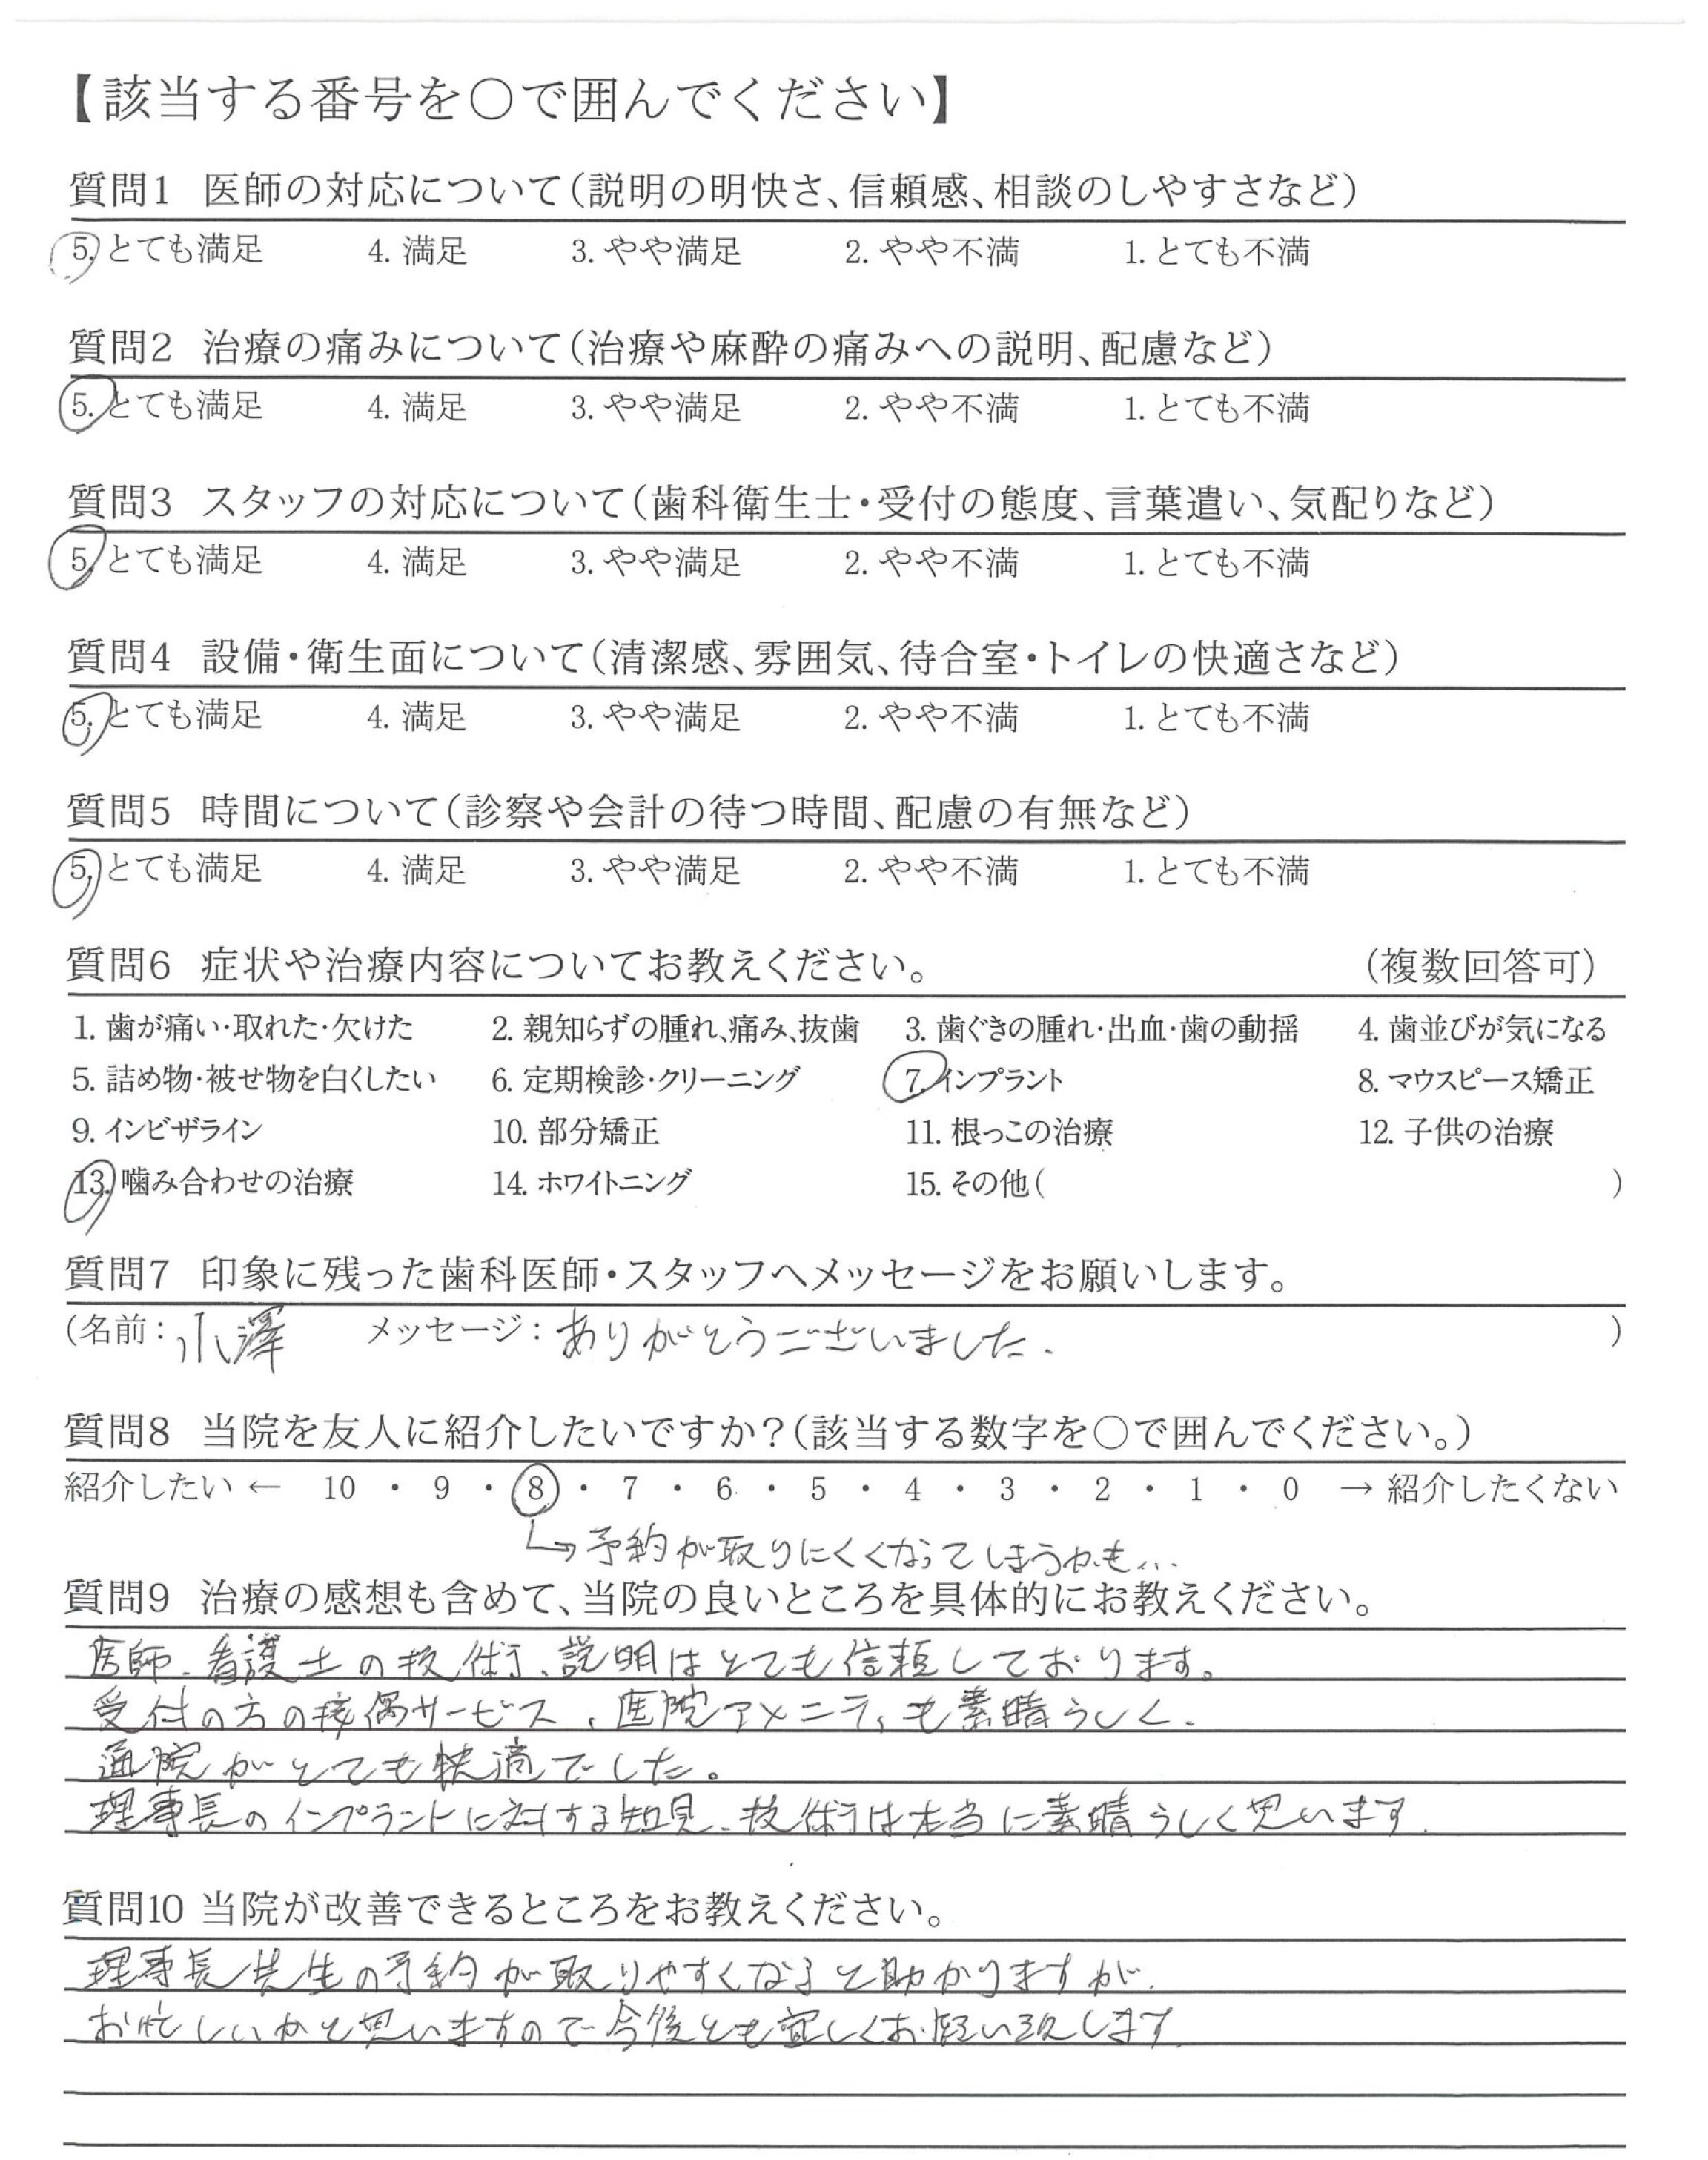 【該当する番号を○で囲んでください】
質問1 医師の対応について(説明の明快さ、信頼感、相談のしやすさなど)
5. とても満足 4. 満足 3. やや満足 2. やや不満 1. とても不満
質問2 治療の痛みについて(治療や麻酔の痛みへの説明、配慮など)
5. とても満足 4. 満足 3. やや満足 2. やや不満 1. とても不満
質問3 スタッフの対応について(歯科衛生士・受付の態度、言葉遣い、気配りなど)
5. とても満足 4. 満足 3. やや満足 2. やや不満 1. とても不満
質問4 設備・衛生面について(清潔感、雰囲気、待合室・トイレの快適さなど)
5. とても満足 4. 満足 3. やや満足 2. やや不満 1. とても不満
質問5 時間について(診察や会計の待つ時間、配慮の有無など)
5. とても満足 4. 満足 3. やや満足 2. やや不満 1. とても不満
質問6 症状や治療内容についてお教えください。 (複数回答可)
1. 歯が痛い・取れた・欠けた 2. 親知らずの腫れ、痛み、抜歯 3. 歯ぐきの腫れ・出血・歯の動揺 4. 歯並びが気になる
5. 詰め物・被せ物を白くしたい 6. 定期検診・クリーニング 7. インプラント 8. マウスピース矯正
9. インビザライン 10. 部分矯正 11. 根っこの治療 12. 子供の治療
13. 噛み合わせの治療 14. ホワイトニング 15. その他( )
質問7 印象に残った歯科医師・スタッフへメッセージをお願いします。
(名前：小澤 メッセージ：ありがとうございました. )
質問8 当院を友人に紹介したいですか？(該当する数字を○で囲んでください。)
紹介したい ← 10 ・ 9 ・ 8 ・ 7 ・ 6 ・ 5 ・ 4 ・ 3 ・ 2 ・ 1 ・ 0 → 紹介したくない
↳ 予約が取りにくくなってしまうかも...
質問9 治療の感想も含めて、当院の良いところを具体的にお教えください。
医師、看護士の技術、説明はとても信頼しております。
受付の方の接偶サービス、医院アメニティも素晴らしく、
通院がとても快適でした。
理事長のインプラントに対する知見、技術は本当に素晴らしく思います.
質問10 当院が改善できるところをお教えください。
理事長先生の予約が取りやすくなると助かりますが、
お忙しいかと思いますので今後とも宜しくお願い致します